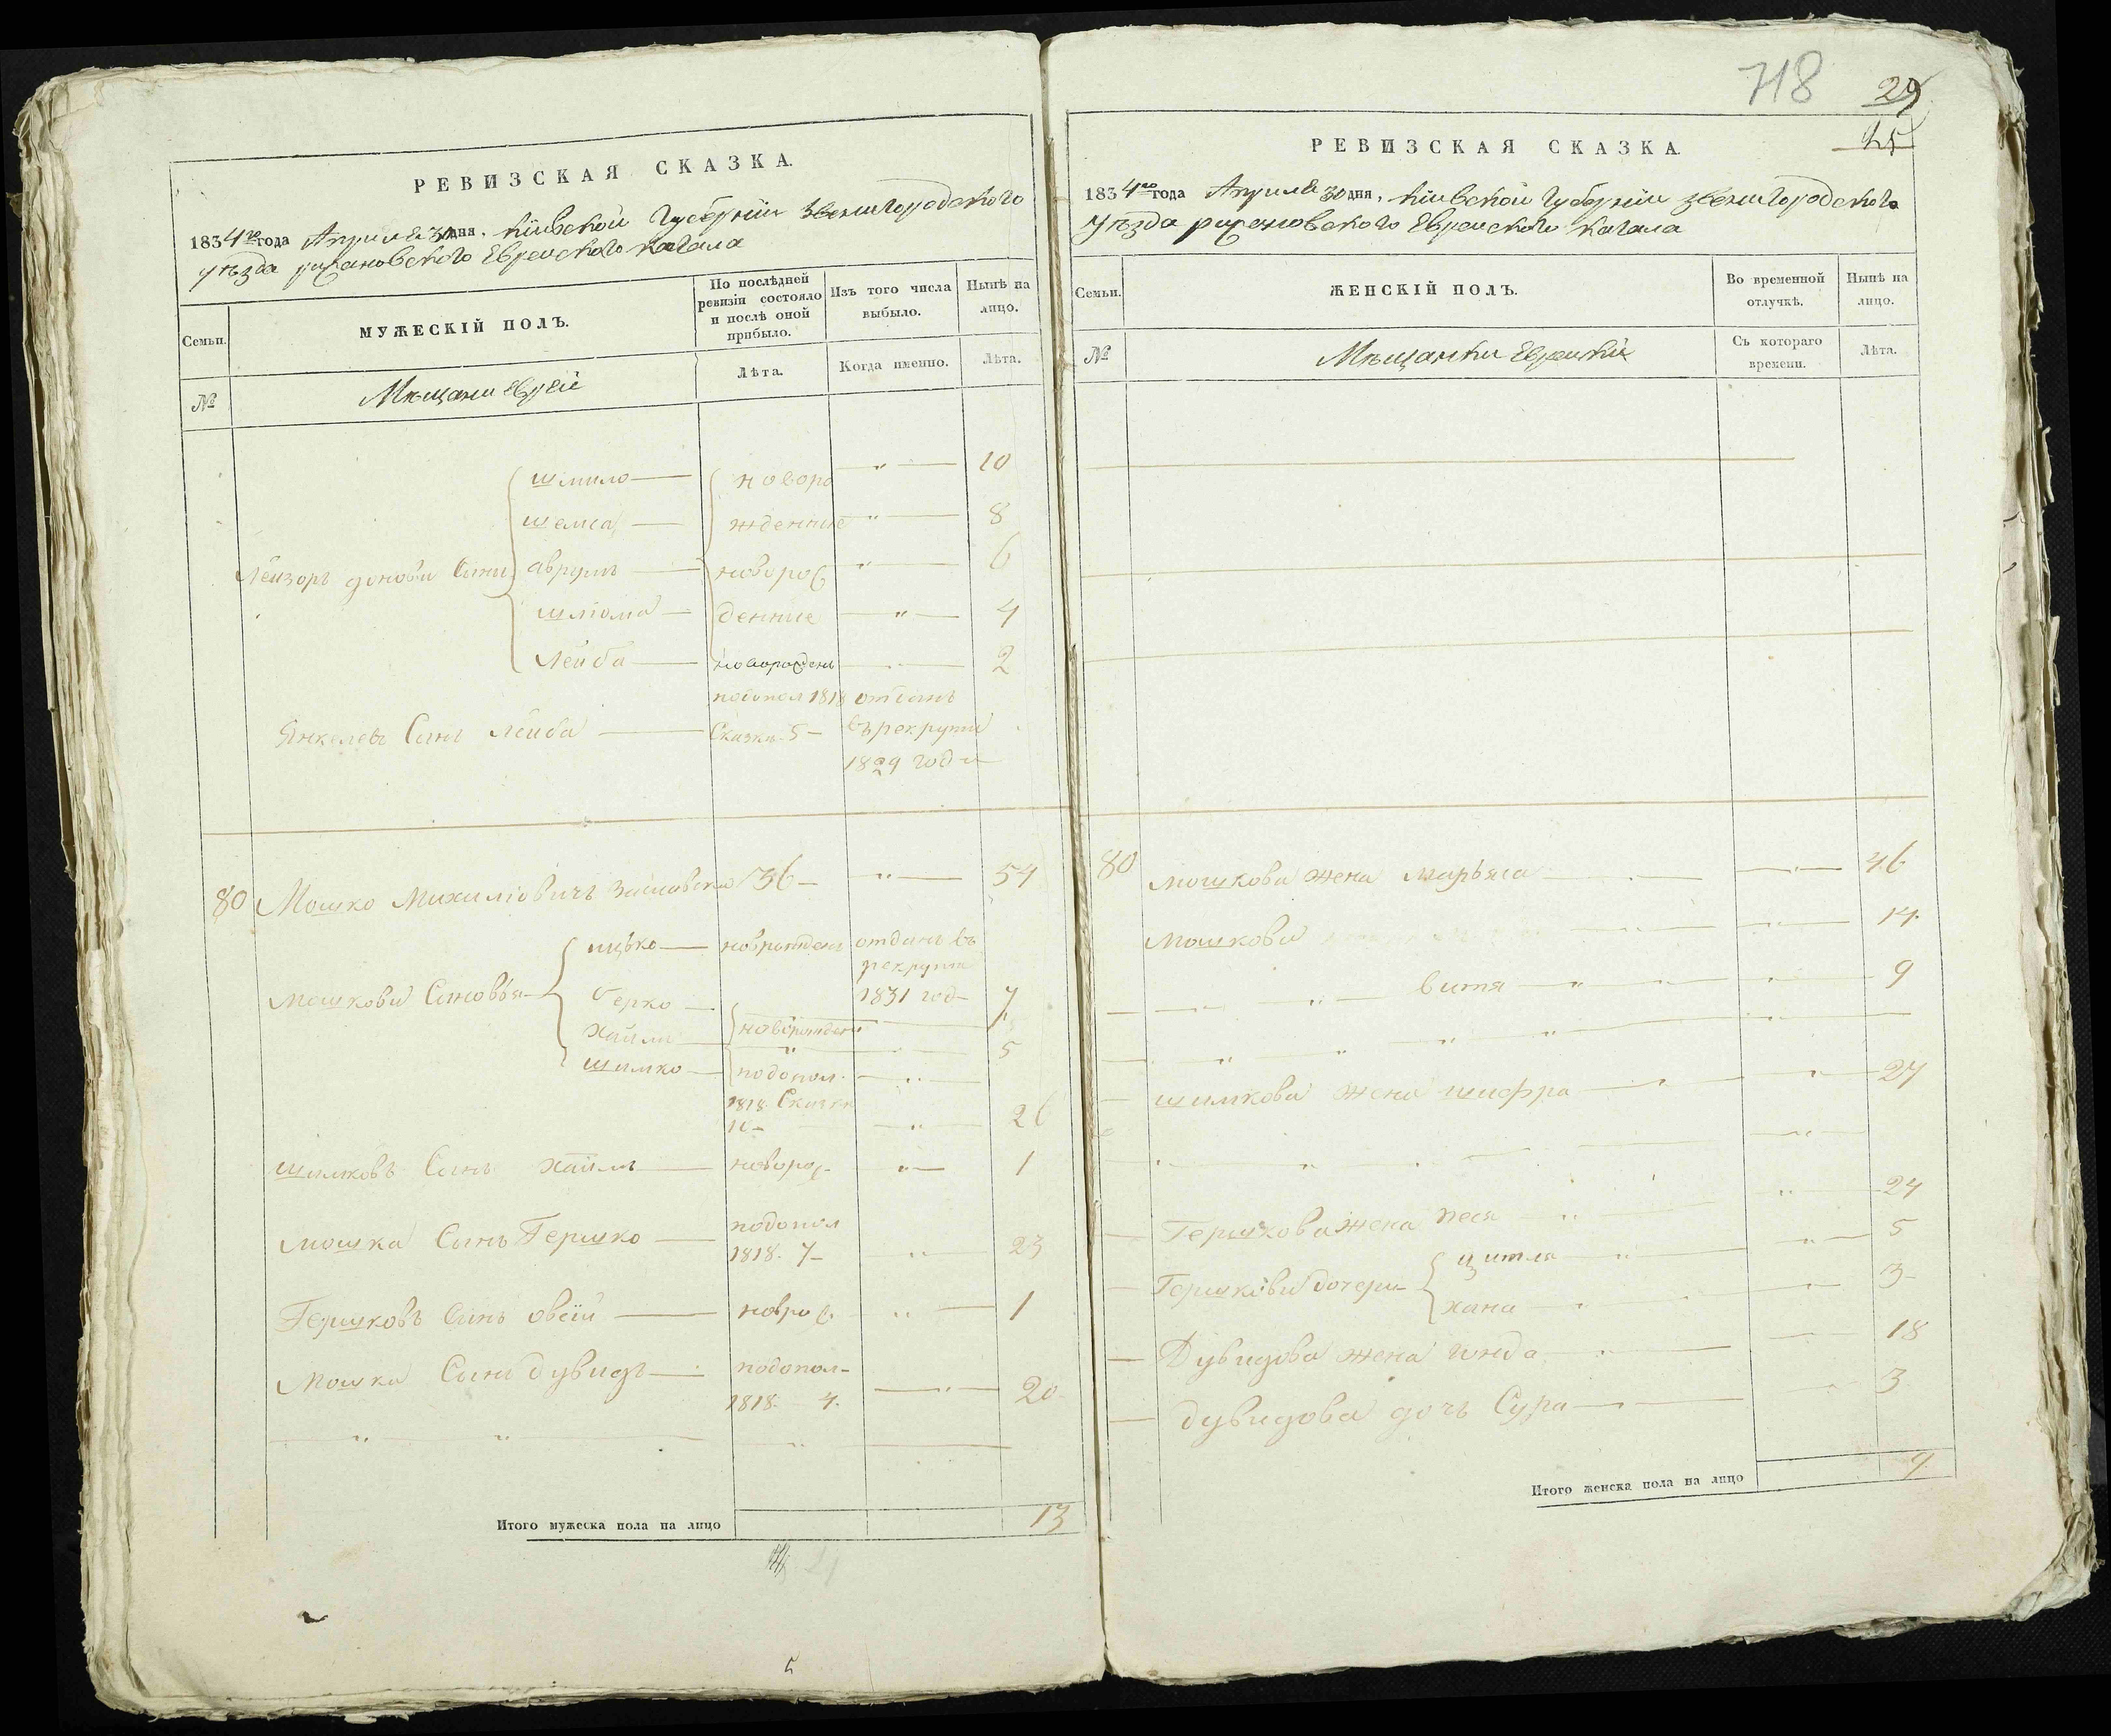 718 29
25
РЕВИЗСКАЯ СКАЗКА.
1834го года Апреля 30 дня. Кіивской Губерніи Звенигородского
уѣзда рижановского Еврейского Кагала
Семьи.
МУЖЕСКІЙ ПОЛЪ.
По послѣдней ревизіи состояло и послѣ оной прибыло.
Изъ того числа выбыло.
Нынѣ на лицо.
№
Мѣщани Еврей
Лѣта.
Когда именно.
Лѣта.
шмило — новоро „ — 10
шемса — жденние „ — 8
Лейзоръ Сини аврумъ — новорож „ — 6
шліома — денние — „ — 4
Лейба — новорожденъ — 2
подопол 1818 отданъ
Янкелевъ Синъ Лейба — Сказки 5 — въ рекрути
1829 год
80 Мошко Михиліовичъ Заславски 36 — „ — 54
ицько — новрожденъ отданъ въ
рекрути
Мошкови Синовья берко — 1831 год — 7
Хаимъ — новорожден
„ — 5
шимко — подопол.
1818. Сказки
10 — „ — 26
шимковъ Синъ хаимъ — новорож — „ — 1
мошка Синъ Гершко — подопол
1818. 7 — „ — 23
Гершковъ Синъ овсій — новрож. „ — 1
Мошка Синъ дувидъ — подопол —
1818. 4. — „ — 20
„ „ „
Итого мужеска пола на лицо 13
РЕВИЗСКАЯ СКАЗКА.
1834го года Апреля 30 дня. Кіивской Губерніи Звенигородского
Уѣзда рижановского Еврейского Кагала
Семьи.
ЖЕНСКІЙ ПОЛЪ.
Во временной отлучкѣ.
Нынѣ на лицо.
№
Мѣщанки Еврейкіи
Съ котораго времени.
Лѣта.
80 мошкова жена марьяса — 46
Мошкови — „ — 14
„ витя — „ — 9
„ „ „ „
шимкова жена шифра — „ — 27
Гершкова жена песя — „ — 24
цитля — „ — 5
Гершкови дочери
хана — 3
Дувидова жена гинда — 18
дувидова дочъ Сура — 3
Итого женска пола на лицо 9